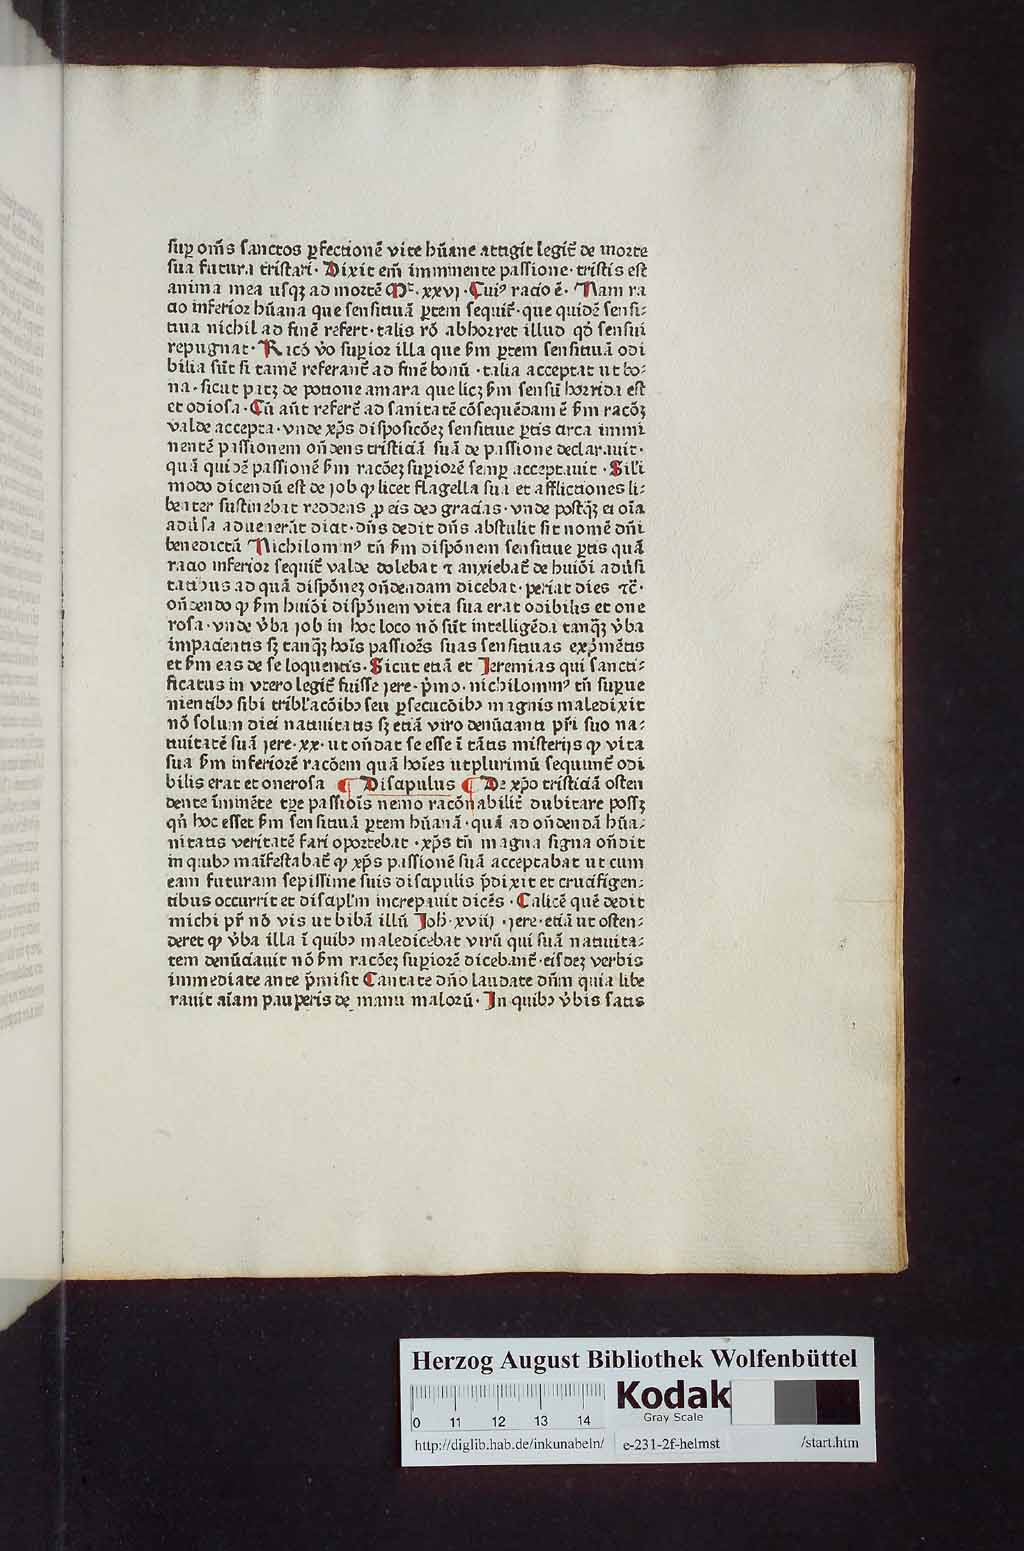 sup om̄s sanctos ꝑfectionē vite hūane attigit legit᷑ de morte
sua futura tristari· Dixit em̄ imminente passione· tristis est
anima mea usqꝫ ad mortē Mt̄· xxvj ·Cuiꝰ racio ē· Nam ra
cio inferior hūana que sensitiuā ꝑtem sequit᷑· que quidē sensi⸗
tiua nichil ad finē refert· talis rō abhorret illud qd̄ sensui
repugnat· Racō v̄o superior illa que ẜm ꝑtem sensitiuā odi
bilia sūt si tamē referant᷑ ad finē bonū ·talia acceptat ut bo⸗
na· sicut patꝫ de potione amara que licꝫ ẜm sensū horrida est
et odiosa· Cū aūt refert᷑ ad sanitatē cōsequēdam ē ẜm racōꝫ
valde accepta· vnde xp̄s disposicōeꝫ sensitiue ꝑtis circa immi
nentē passionem on̄dens tristiciā suā de passione declarauit·
quā quidē passionē ẜm racōeꝫ superiorē semꝑ acceptauit ·Sili
modo dicendū est de job ꝙ licet flagella sua et afflictiones li⸗
benter sustinebat reddens ꝓ eis deo gracias· vnde postqꝫ̄ ei oīa
adūsa aduenerūt dicit· dn̄s dedit dn̄s abstulit sit nomē dn̄i
benedictū Nichilominꝰ tn̄ ẜm dispōnem sensitiue ꝑtis quā
racio inferior sequit᷑ valde dolebat ⁊ anxiebat᷑ de huiōi adūsi
tatibus ad quā dispōneꝫ on̄dendam dicebat· periat dies ⁊c̄·
on̄dendo ꝙ ẜm huiōi dispōnem vita sua erat odibilis et one
rosa· vnde v̄ba job in hoc loco nō sūt intelligēda tanqꝫ̄ v̄ba
impacientis sꝫ tanqꝫ̄ hoīs passiōēs suas sensitiuas exp̄mētis
et ẜm eas de se loquentis· Sicut etiā et Jeremias qui sancti⸗
ficatus in vtero legit᷑ fuisse jere· p̄mo· nichilominꝰ tn̄ superue
nientibꝫ sibi tribl̄acōibꝫ seu ꝑsecucōibꝫ magnis maledixit
nō solum diei natiuitatis sꝫ etiā viro denūcianti pr̄i suo na⸗
tiuitatē suā jere· xx· ut on̄dat se esse ī tātis misterijs ꝙ vita
sua ẜm inferiorē racōem quā hoīes utplurimū sequunt᷑ odi
bilis erat et onerosa ¶ Discipulus ¶ De xp̄o tristiciā osten
dente īminēte tp̄e passiōīs nemo racōnabilit᷑ dubitare possꝫ
qn̄ hoc esset ẜm sensitiuā ꝑtem hūanā· quā ad on̄dendā hūa⸗
nitatis veritatē fari oportebat ·xp̄s tn̄ magna signa on̄dit
in quibꝫ maīfestabat᷑ ꝙ xp̄s passionē suā acceptabat ut cum
eam futuram sepissime suis discipulis p̄dixit et crucifigen⸗
tibus occurrit et discipl̄m increpauit dicēs ·Calicē quē dedit
michi pr̄ nō vis ut bibā illū Joh̄· xviij ·jere· etiā ut osten⸗
deret ꝙ v̄ba illa ī quibꝫ maledicebat virū qui suā natiuita⸗
tem denūciauit nō ẜm racōeꝫ superiorē dicebant᷑· eisdeꝫ verbis
immediate ante p̄misit Cantate dn̄o laudate dn̄m quia libe
rauit aīam pauperis de manu malorū· Jn quibꝫ v̄bis satis
Herzog August Bibliothek Wolfenbüttel
Kodak
Gray Scale
0 11 12 13 14
http://diglib.hab.de/inkunabeln/ e-231-2f-helmst /start.htm